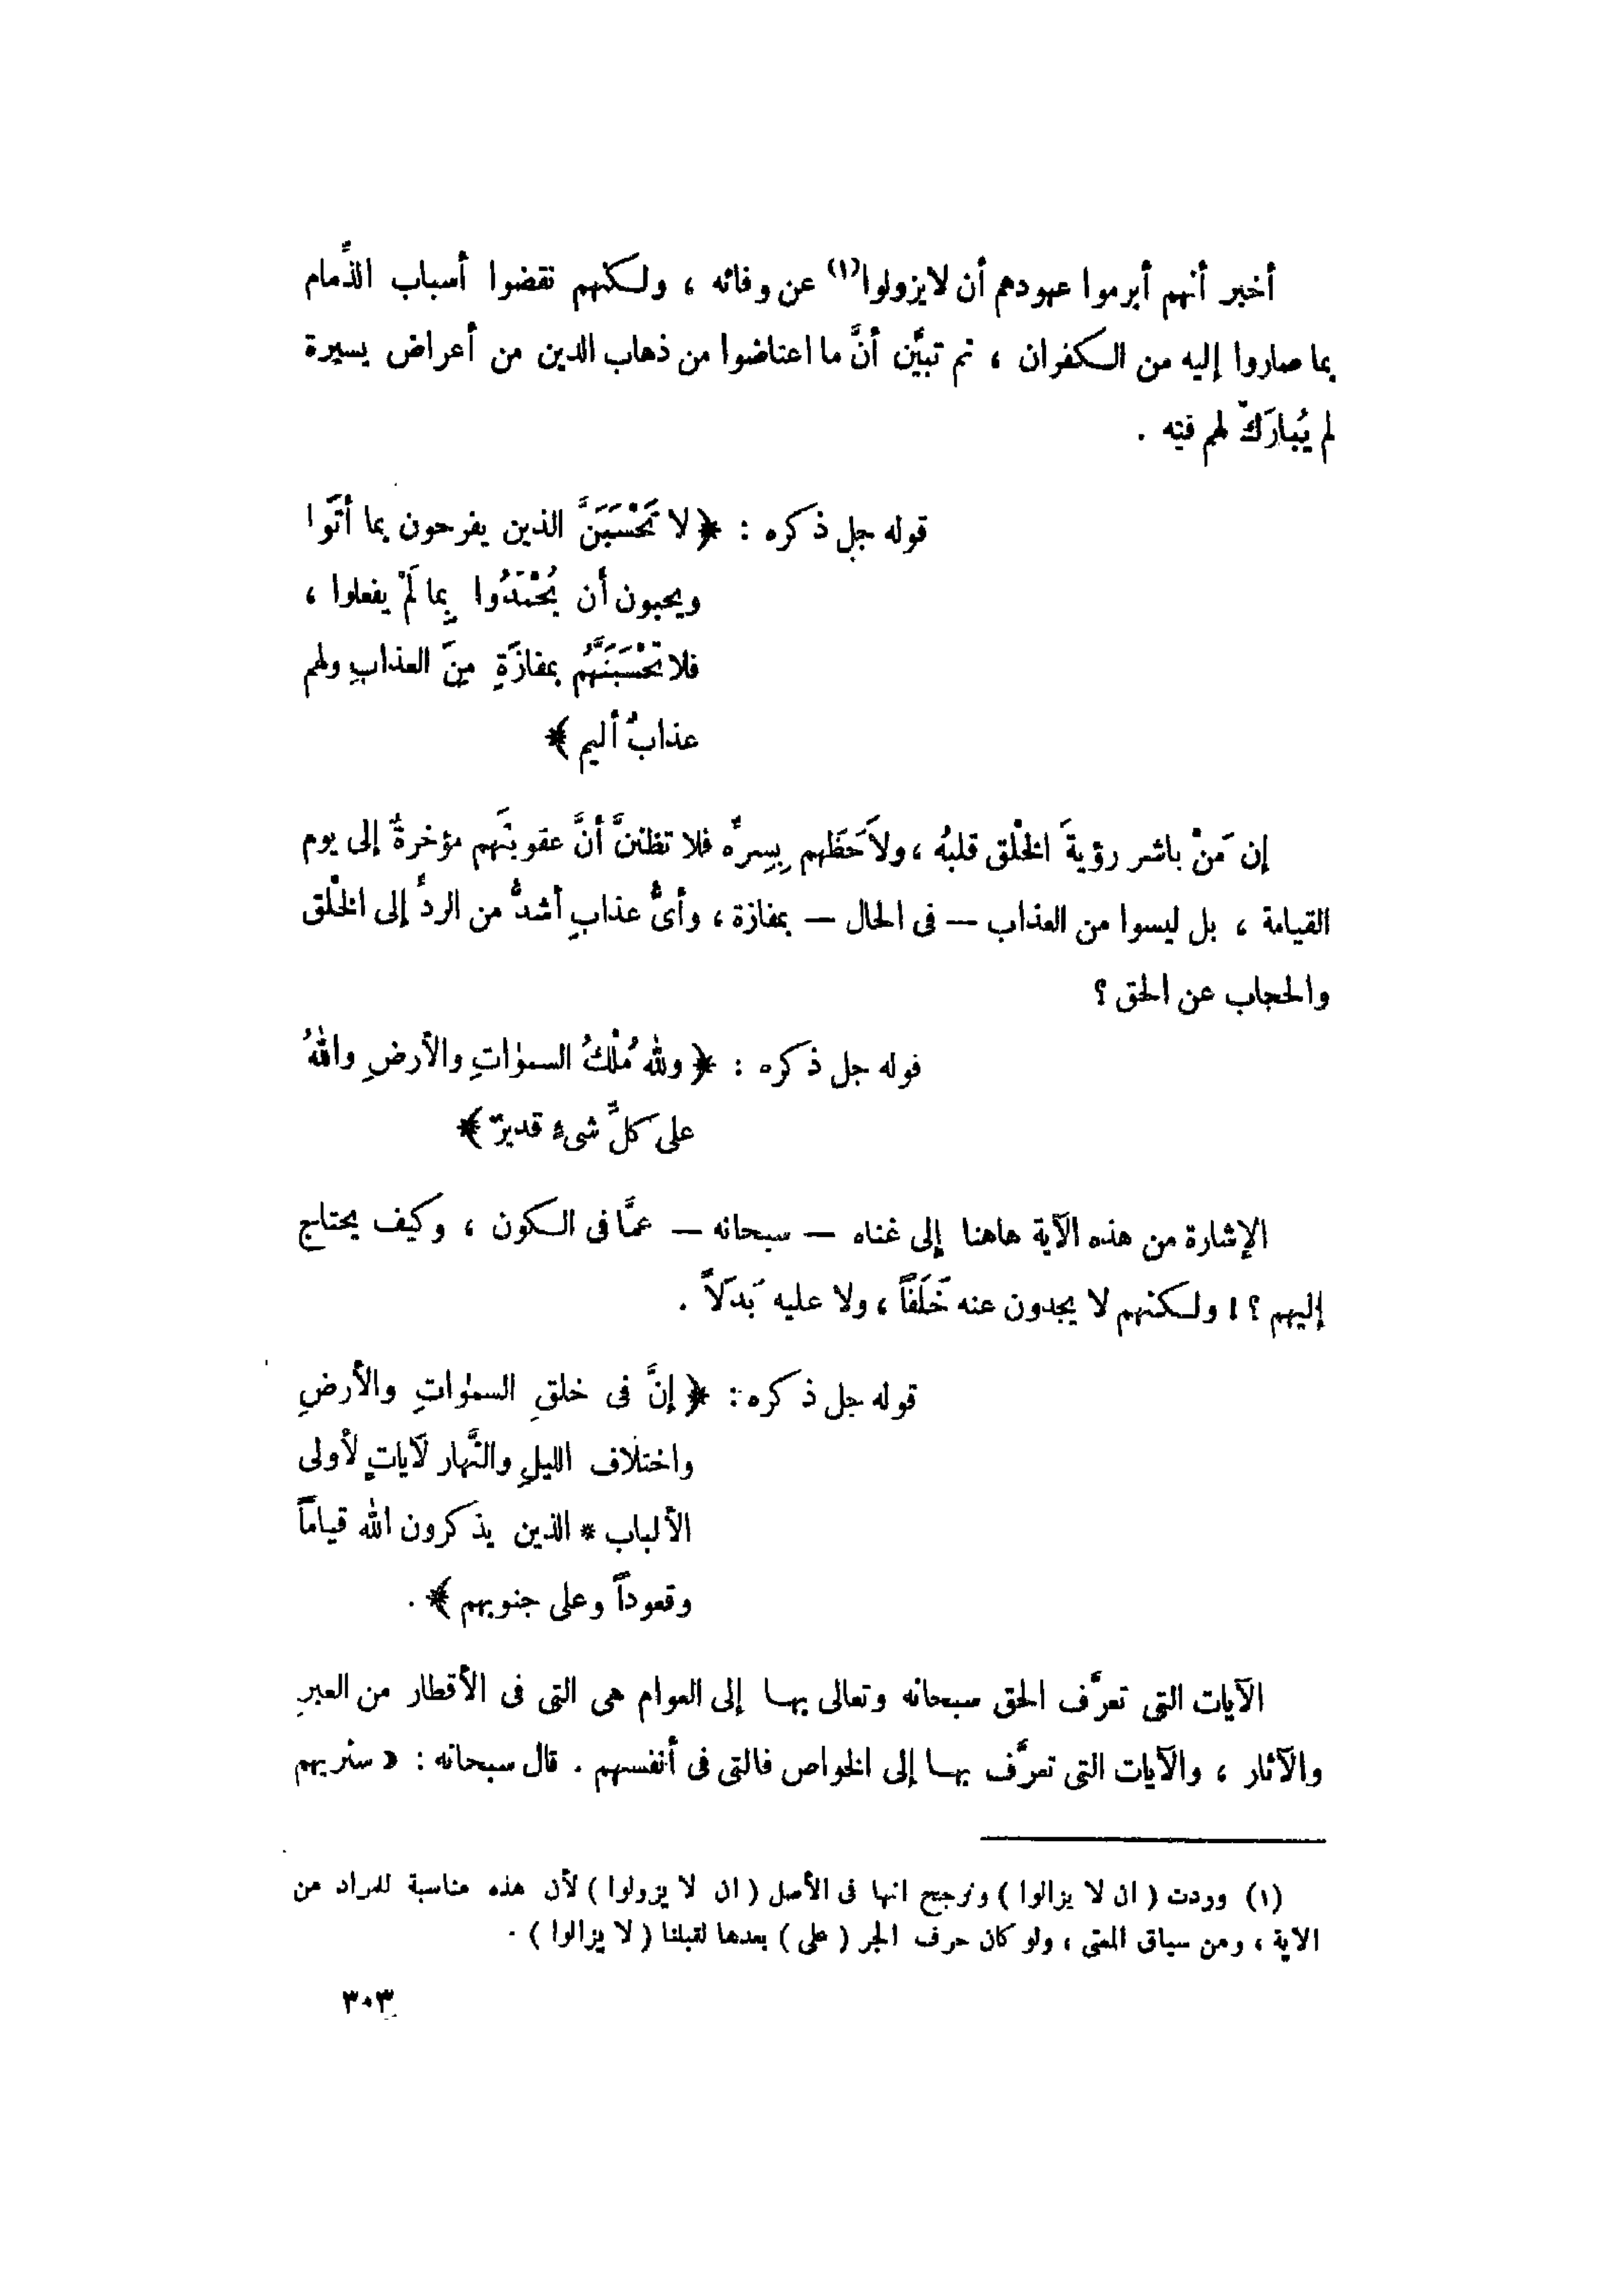 أخبر أنهم أبرموا عهودهم أن لا يزولوا(١) عن وفائه ، ولكنهم نقضوا أسباب الذِّمام
بما صاروا إليه من الكفران ، ثم تبيَّن أنَّ ما اعتاضوا من ذهاب الدين من أعراض يسيرة
لم يُبارَكْ لهم فيه .
قوله جل ذكره : ﴿ لا تَحْسَبَنَّ الذين يفرحون بما أتَوا
ويحبون أن يُحْمَدُوا بِما لَمْ يفعلوا ،
فلا تَحْسَبَنَّهُم بمفازَةٍ مِنَ العذابِ ولهم
عذابٌ أليم ﴾
إن مَنْ باشر رؤيةَ الخلْق قلبُه ، ولاَحَظَهم بِسِرِّه فلا تظننَّ أنَّ عقوبتَهم مؤخرةٌ إلى يوم
القيامة ، بل ليسوا من العذاب — فى الحال — بمفازة ، وأىُّ عذابٍ أشدُّ من الردِّ إلى الخلْق
والحجاب عن الحق ؟
قوله جل ذكره : ﴿ ولله مُلْكُ السمٰواتِ والأرضِ واللهُ
على كلِّ شىءٍ قديرٌ ﴾
الإشارة من هذه الآية هاهنا إلى غناه — سبحانه — عمَّا فى الكون ، وكيف يحتاج
إليهم ؟ ! ولكنهم لا يجدون عنه خَلَفاً ، ولا عليه بَدَلاً .
قوله جل ذكره : ﴿ إنَّ فى خلقِ السمٰواتِ والأرضِ
واختلاف الليلِ والنَّهار لَآياتٍ لأولى
الألباب * الذين يذكرون الله قياماً
وقعوداً وعلى جنوبهم ﴾ .
الآيات التى تعرَّف الحق سبحانه وتعالى بها إلى العوام هى التى فى الأقطار من العبرِ
والآثار ، والآيات التى تعرَّف بها إلى الخواص فالتى فى أنفسهم . قال سبحانه : « سنريهم
(١) وردت ( ان لا يزالوا ) ونرجح انها فى الأصل ( ان لا يزولوا ) لأن هذه مناسبة للمراد من
الاية ، ومن سياق المعنى ، ولو كان حرف الجر ( على ) بعدها لقبلنا ( لا يزالوا ) .
٣٠٣